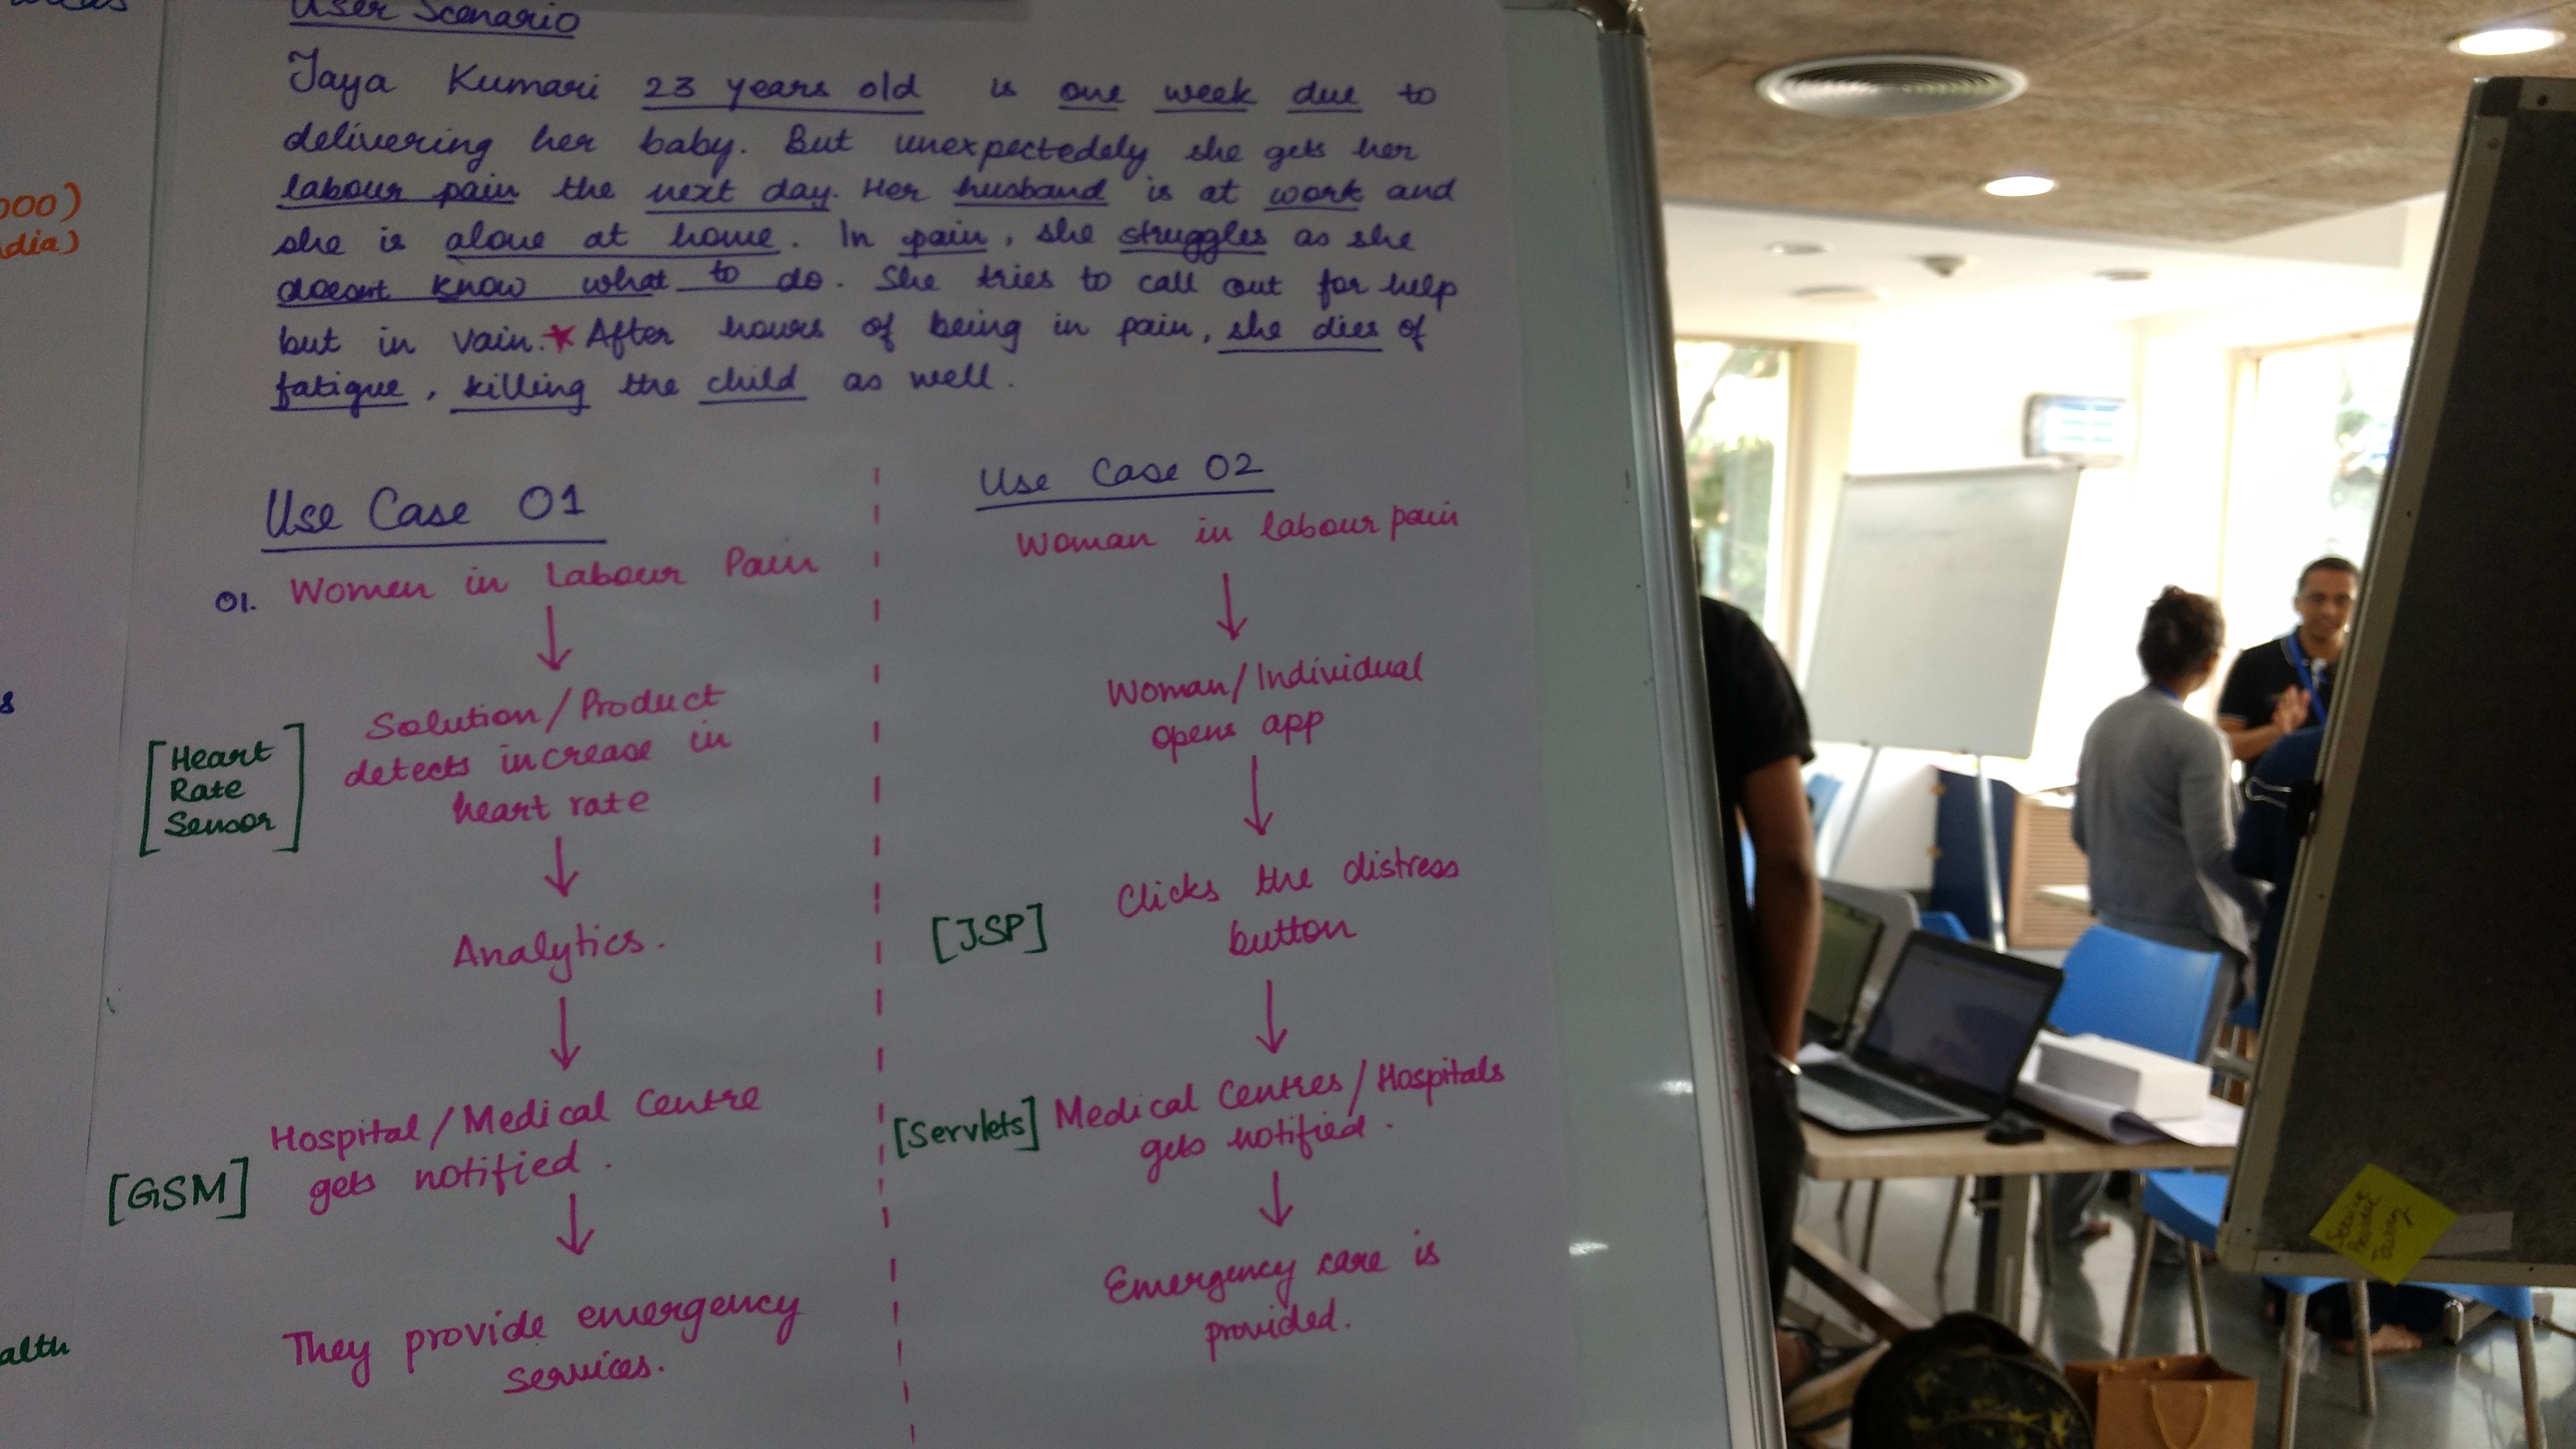 User Scenario
Jaya Kumari 23 years old is one week due to
delivering her baby. But unexpectedely she gets her
labour pain the next day. Her husband is at work and
she is alone at home. In pain, she struggles as she
doesnt know what to do. She tries to call out for help
but in vain.* After hours of being in pain, she dies of
fatigue, killing the child as well.
000)
dia)
s
alth
Use Case 01
01. Women in Labour Pain
Solution/Product
detects increase in
heart rate
[Heart
Rate
Sensor]
Analytics.
Hospital/Medical Centre
gets notified.
[GSM]
They provide emergency
services.
Use Case 02
Woman in labour pain
Woman/Individual
opens app
Clicks the distress
button
[JSP]
[Servlets] Medical Centres/Hospitals
gets notified.
Emergency care is
provided.
Service